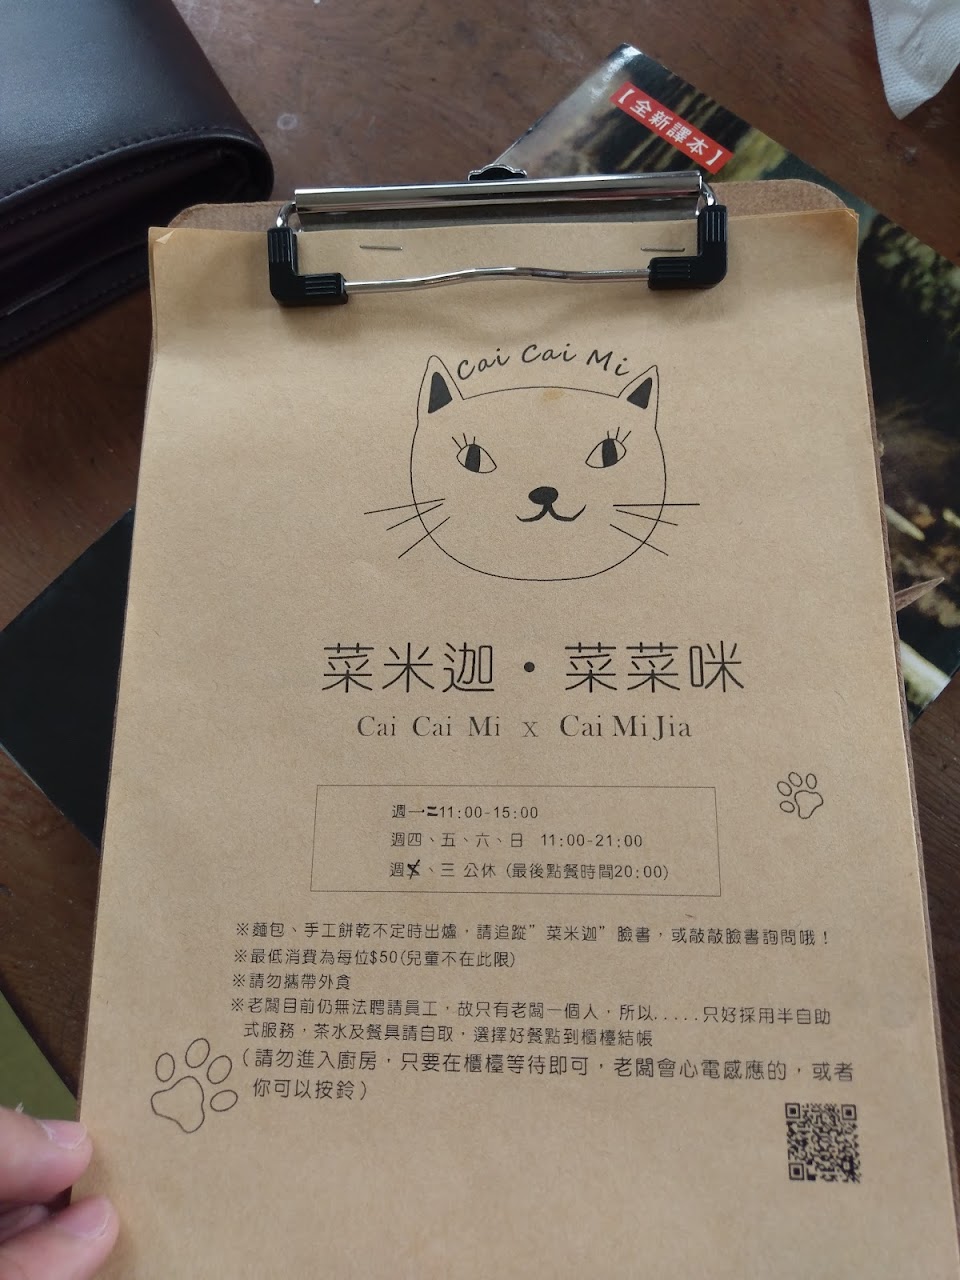 【全新譯本】
Cai Cai Mi
菜米迦・菜菜咪
Cai Cai Mi x Cai Mi Jia
週一二11:00-15:00
週四、五、六、日 11:00-21:00
週、三 公休 (最後點餐時間20:00)
※麵包、手工餅乾不定時出爐，請追蹤”菜米迦”臉書，或敲敲臉書詢問哦！
※最低消費為每位$50(兒童不在此限)
※請勿攜帶外食
※老闆目前仍無法聘請員工，故只有老闆一個人，所以.....只好採用半自助
式服務，茶水及餐具請自取，選擇好餐點到櫃檯結帳
（請勿進入廚房，只要在櫃檯等待即可，老闆會心電感應的，或者
你可以按鈴）